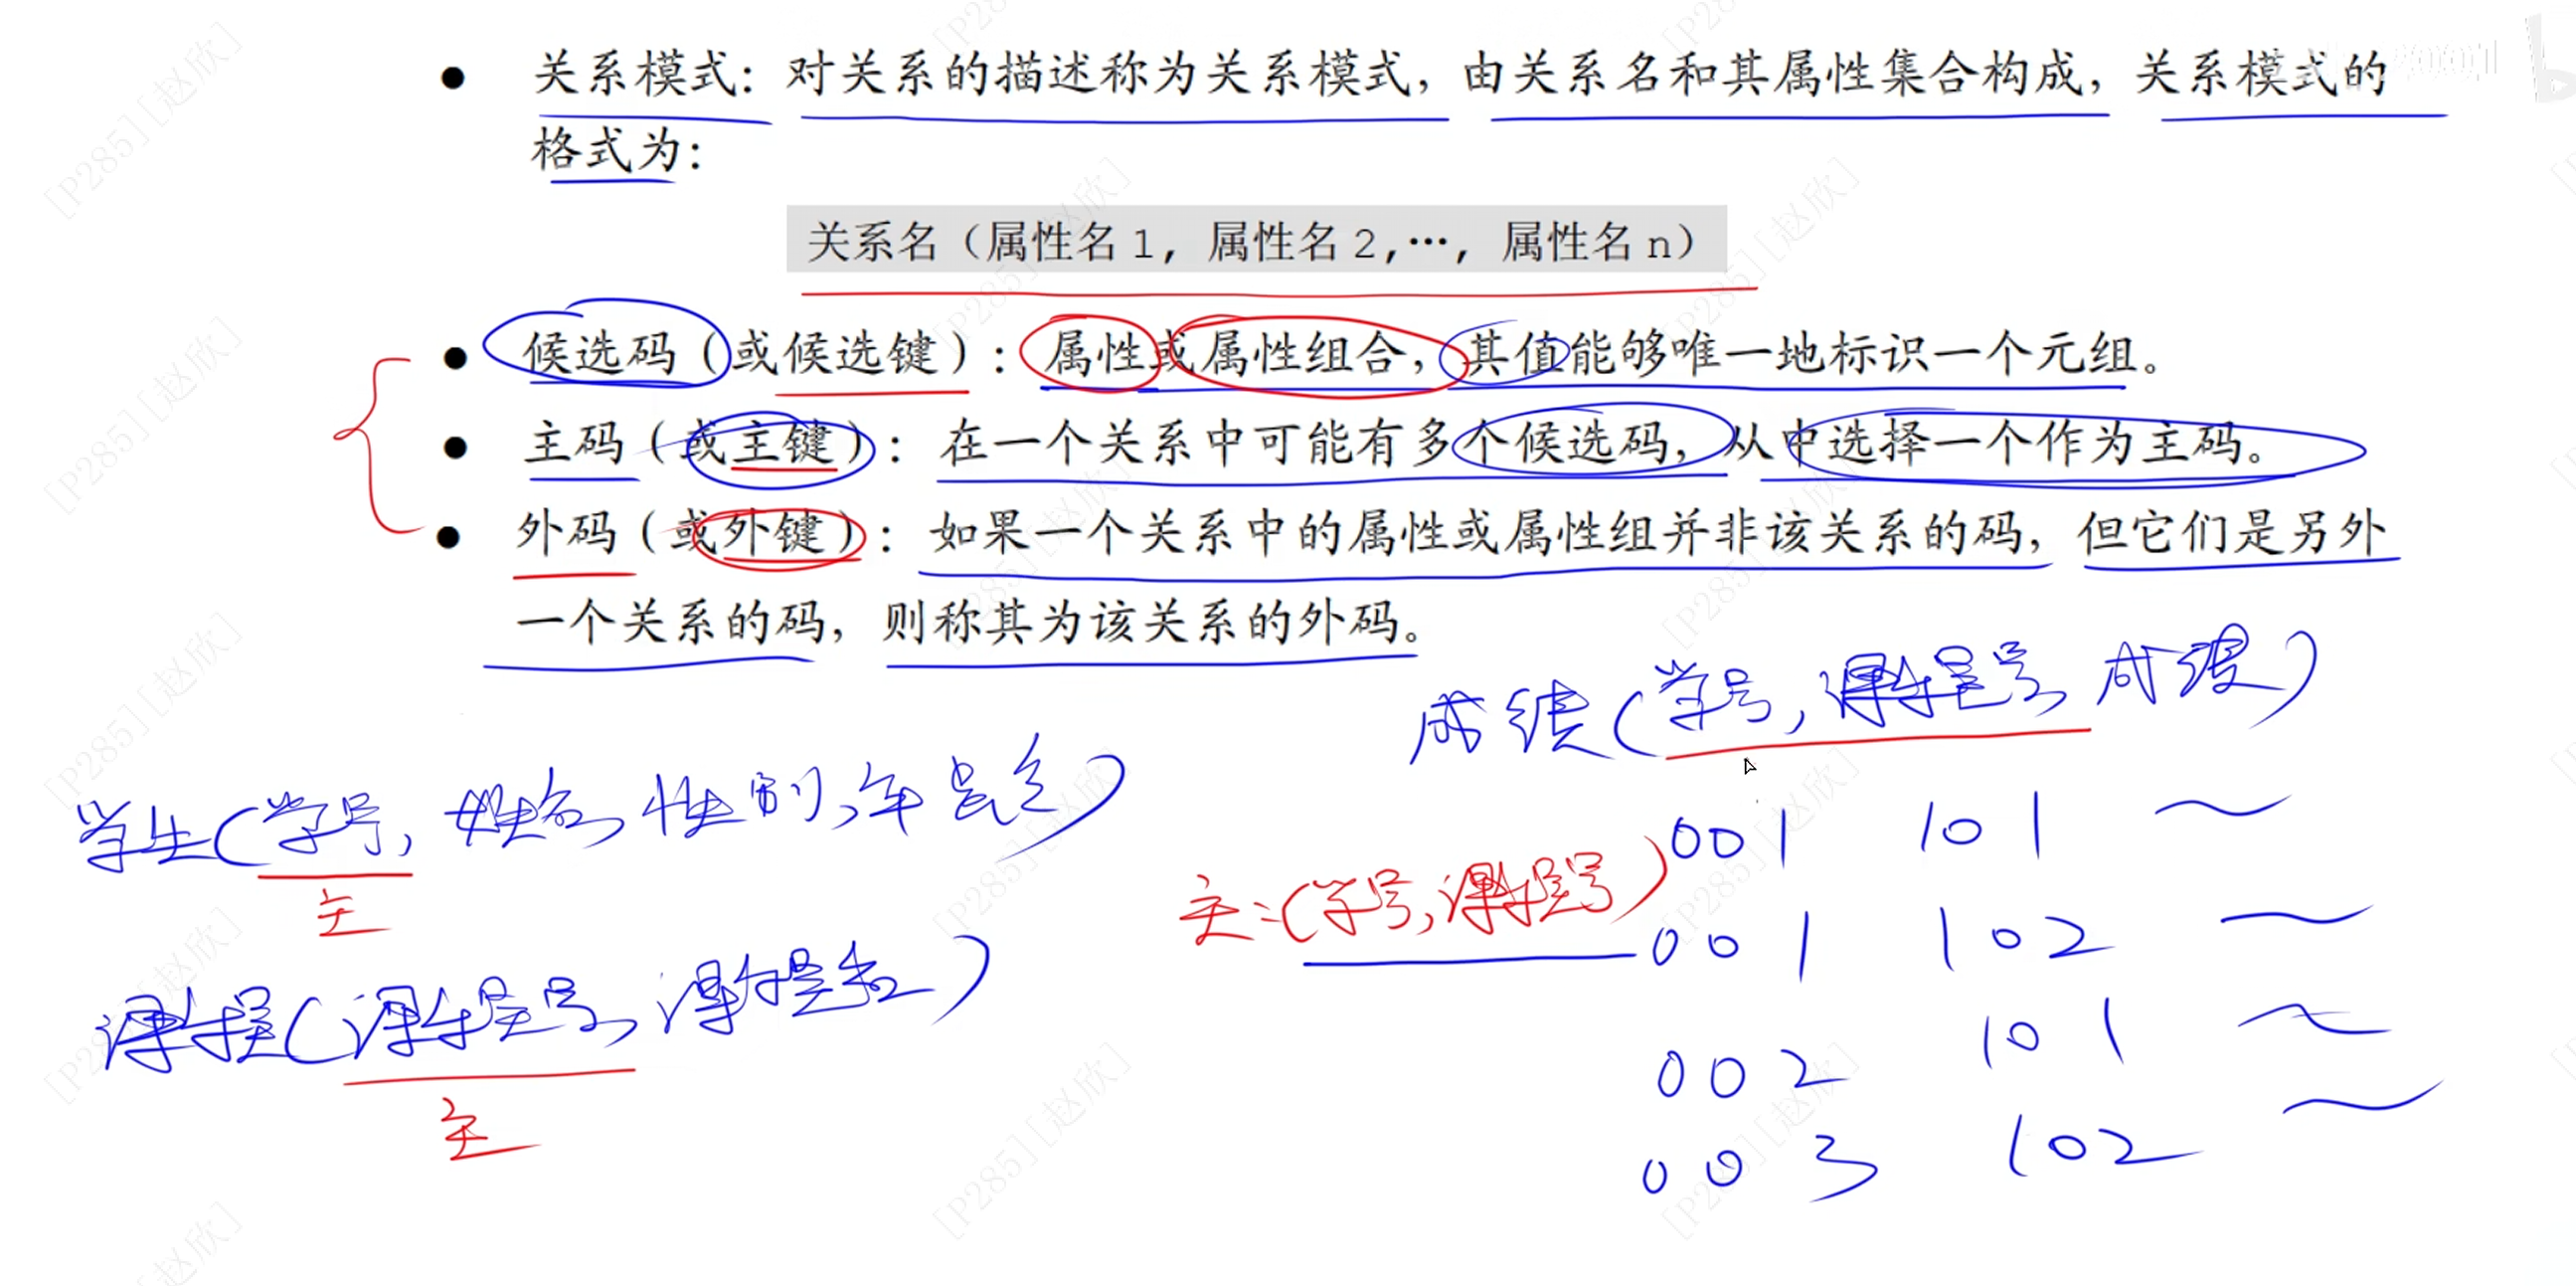 ● 关系模式：对关系的描述称为关系模式，由关系名和其属性集合构成，关系模式的
格式为：
关系名（属性名1，属性名2,…，属性名n）
● 候选码（或候选键）：属性或属性组合，其值能够唯一地标识一个元组。
● 主码（或主键）：在一个关系中可能有多个候选码，从中选择一个作为主码。
● 外码（或外键）：如果一个关系中的属性或属性组并非该关系的码，但它们是另外
一个关系的码，则称其为该关系的外码。
成绩（学号，课程号，成绩）
学生（学号，姓名，性别，年龄）
主
001 101
主：（学号，课程号）
001 102
课程（课程号，课程名）
主
002 101
003 102
[P285][赵欣]
[P285][赵欣]
[P285][赵欣]
[P285][赵欣]
[P285][赵欣]
[P285][赵欣]
[P285][赵欣]
[P285][赵欣]